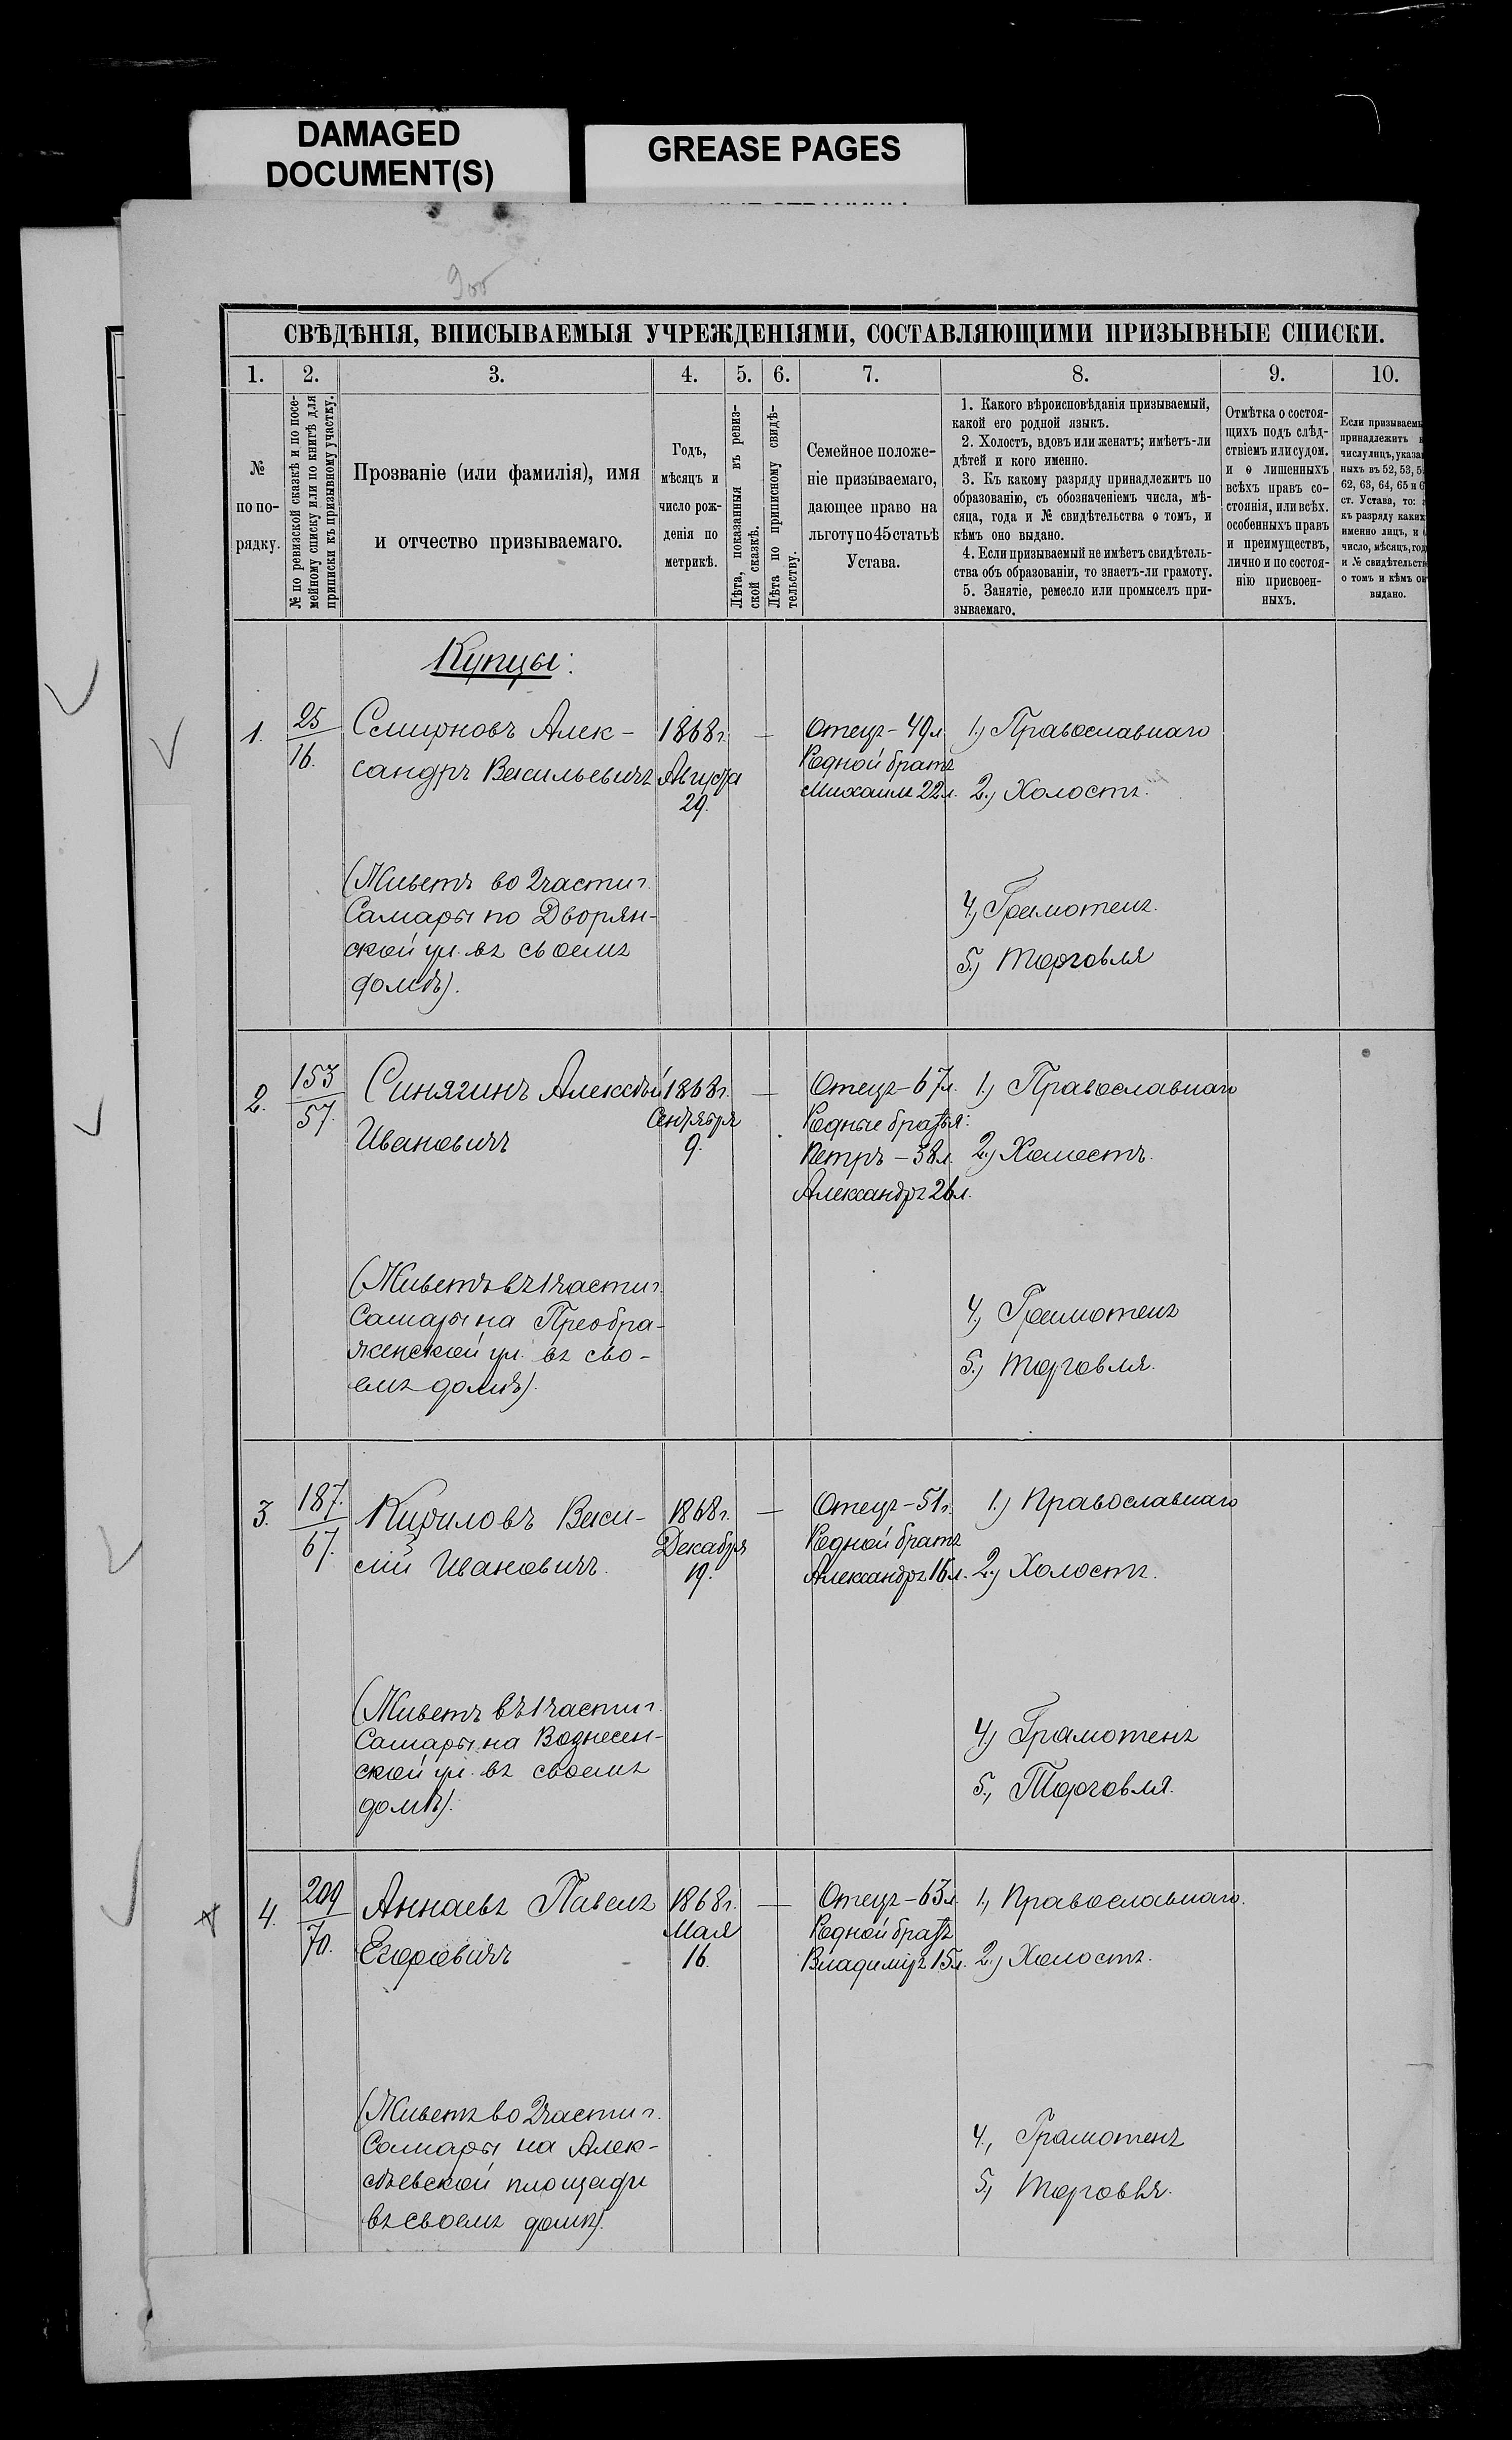 DAMAGED
DOCUMENT(S)
GREASE PAGES
900
СВѢДѢНІЯ, ВПИСЫВАЕМЫЯ УЧРЕЖДЕНІЯМИ, СОСТАВЛЯЮЩИМИ ПРИЗЫВНЫЕ СПИСКИ.
1. 2. 3. 4. 5. 6. 7. 8. 9. 10.
№
по по-
рядку.
№ по ревизской сказкѣ и по посе-
мейному списку или по книгѣ для
приписки къ призывному участку.
Прозваніе (или фамилія), имя
и отчество призываемаго.
Годъ,
мѣсяцъ и
число рож-
денія по
метрикѣ.
Лѣта, показанныя въ ревиз-
ской сказкѣ.
Лѣта по приписному свидѣ-
тельству.
Семейное положе-
ніе призываемаго,
дающее право на
льготу по 45 статьѣ
Устава.
1. Какого вѣроисповѣданія призываемый,
какой его родной языкъ.
2. Холостъ, вдовъ или женатъ; имѣетъ-ли
дѣтей и кого именно.
3. Къ какому разряду принадлежитъ по
образованію, съ обозначеніемъ числа, мѣ-
сяца, года и № свидѣтельства о томъ, и
кѣмъ оно выдано.
4. Если призываемый не имѣетъ свидѣтель-
ства объ образованіи, то знаетъ-ли грамоту.
5. Занятіе, ремесло или промыселъ при-
зываемаго.
Отмѣтка о состоя-
щихъ подъ слѣд-
ствіемъ или судом.
и о лишенныхъ
всѣхъ правъ со-
стоянія, или всѣх.
особенныхъ правъ
и преимуществъ,
лично и по состоя-
нію присвоен-
ныхъ.
Если призываемы
принадлежитъ
числу лицъ, указан
ныхъ въ 52, 53, 5
62, 63, 64, 65 и 6
ст. Устава, то:
къ разряду каких
именно лицъ, и
число, мѣсяцъ, год
и № свидѣтельств
о томъ и кѣмъ он
выдано.
Купцы:
1.
25
16.
Смирновъ Алек-
сандръ Васильевичъ
1868г.
Августа
29.
—
Отецъ - 49л.
Родной братъ
Михаилъ 22л.
1.) Православнаго
2.) Холостъ.
(Живетъ во 2 части г.
Самары по Дворян-
ской ул. въ своемъ
домѣ).
4.) Грамотенъ.
5.) Торговля
2.
153
57.
Синягинъ Алексѣй
Ивановичъ
1868г.
Сентября
9.
—
Отецъ - 67л.
Родные братья:
Петръ - 38л.
Александръ 26л.
1.) Православнаго
2.) Холостъ.
(Живетъ въ 1 части г.
Самары на Преобра-
женской ул. въ сво-
емъ домѣ).
4.) Грамотенъ
5.) Торговля.
3.
187.
67.
Кириловъ Васи-
лій Ивановичъ.
1868г.
Декабря
19.
—
Отецъ - 51г.
Родной братъ
Александръ 16л.
1.) Православнаго
2.) Холостъ.
(Живетъ въ 1 части г.
Самары на Вознесен-
ской ул. въ своемъ
домѣ).
4.) Грамотенъ
5., Торговля.
4.
209
70.
Аннаевъ Павелъ
Егоровичъ
1868г.
Мая
16.
—
Отецъ - 63л.
Родной братъ
Владиміръ 15л.
1., Православнаго.
2.) Холостъ.
(Живетъ во 2 части г.
Самары на Алек-
сѣевской площади
въ своемъ домѣ).
4., Грамотенъ
5., Торговля.